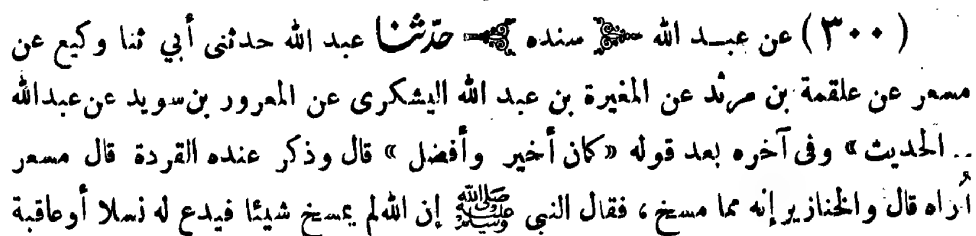 (٣٠٠) عن عبد الله سنده حدّثنا عبد الله حدثنى أبي ثنا وكيع عن
مسعر عن علقمة بن مرثد عن المغيرة بن عبد الله اليشكرى عن المعرور بن سويد عن عبدالله
.. الحديث» وفى آخره بعد قوله «كان أخير وأفضل» قال وذكر عنده القردة قال مسعر
أُراه قال والخنازير إنه مما مسخ، فقال النبي ﷺ إن الله لم يمسخ شيئا فيدع له نسلا أوعاقبة